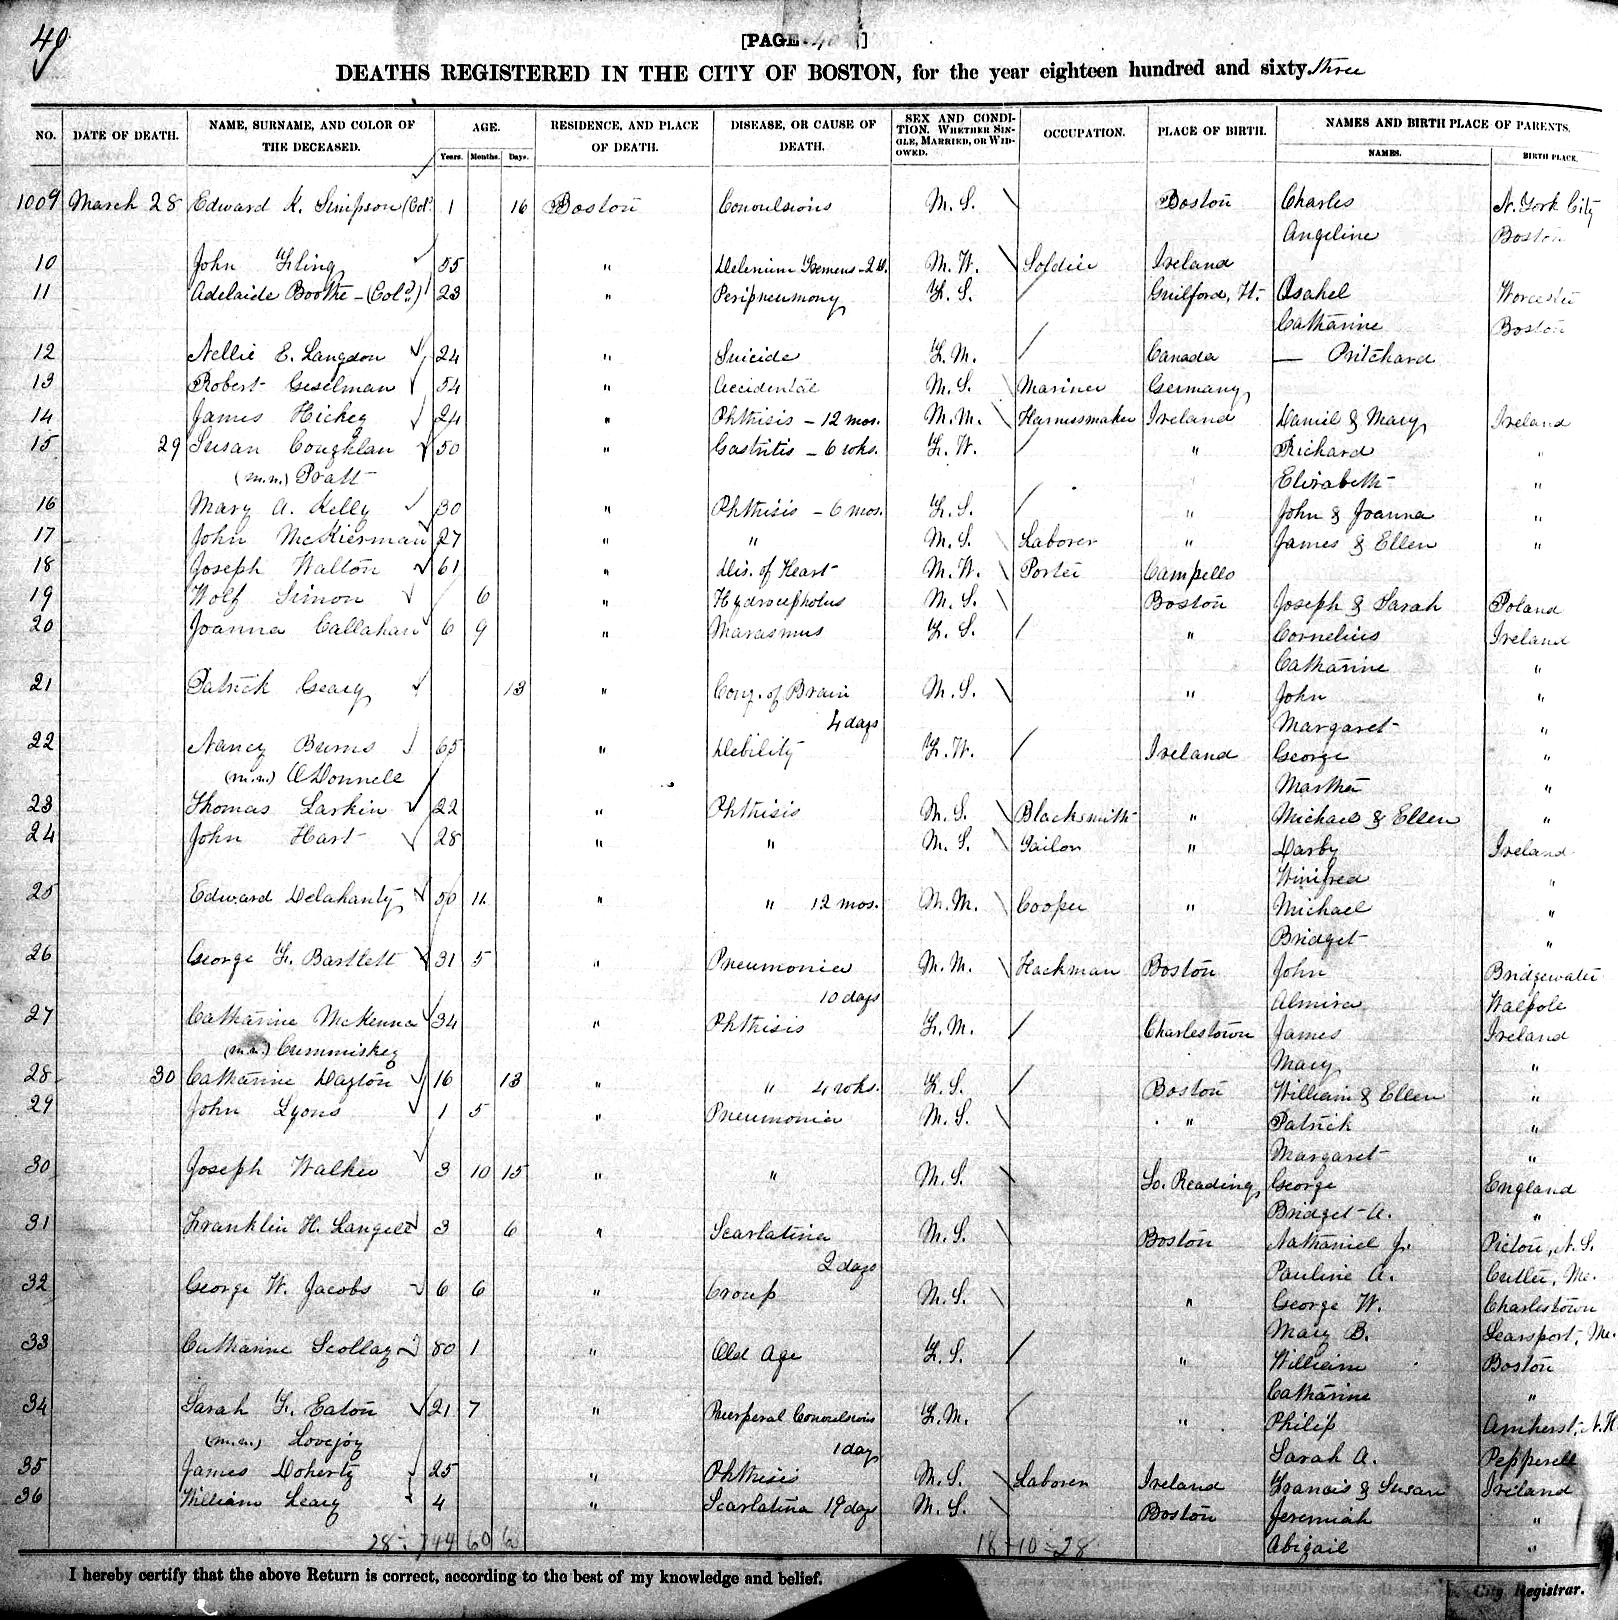 49
[PAGE 40 ]
DEATHS REGISTERED IN THE CITY OF BOSTON, for the year eighteen hundred and sixty three
NO. DATE OF DEATH. NAME, SURNAME, AND COLOR OF THE DECEASED. AGE. Years. Months. Days. RESIDENCE, AND PLACE OF DEATH. DISEASE, OR CAUSE OF DEATH. SEX AND CONDITION. WHETHER SINGLE, MARRIED, OR WIDOWED. OCCUPATION. PLACE OF BIRTH. NAMES AND BIRTH PLACE OF PARENTS. NAMES. BIRTH PLACE.
1009 March 28 Edward K. Simpson (Cold 1 16 Boston Convulsions M. S. Boston Charles N. York City
Angeline Boston
10 John Fling 55 " Delerium Tremens - 2 d. M. W. Soldier Ireland
11 Adelaide Boothe - (Cold) 23 " Peripneumony F. S. Guilford, Vt. Asahel Worcester
Catharine Boston
12 Nellie E. Langdon 24 " Suicide F. M. Canada — Pritchard
13 Robert Geselman 54 " Accidental M. S. Mariner Germany
14 James Hickey 24 " Phthisis - 12 mos. M. M. Harnessmaker Ireland Daniel & Mary Ireland
15 29 Susan Coughlan 50 " Gastritis - 6 wks. F. W. " Richard "
(m.n.) Pratt Elizabeth "
16 Mary A. Kelly 30 " Phthisis - 6 mos. F. S. " John & Joanna "
17 John McKiernan 27 " " M. S. Laborer " James & Ellen "
18 Joseph Walton 61 " Dis. of Heart M. W. Porter Campello
19 Wolf Simon 6 " Hydrocephalus M. S. Boston Joseph & Sarah Poland
20 Joanna Callahan 6 9 " Marasmus F. S. " Cornelius Ireland
Catharine "
21 Patrick Geary 13 " Cong. of Brain M. S. " John "
4 days Margaret "
22 Nancy Burns 65 " Debility F. W. Ireland George "
(m.n.) O'Donnell Martha "
23 Thomas Larkin 22 " Phthisis M. S. Blacksmith " Michael & Ellen "
24 John Hart 28 " " M. S. Tailor " Darby Ireland
Winifred "
25 Edward Delahanty 50 11 " " 12 mos. M. M. Cooper " Michael "
Bridget "
26 George F. Bartlett 31 5 " Pneumonia M. M. Hackman Boston John Bridgewater
10 days Almira Walpole
27 Catharine McKenna 34 " Phthisis F. M. Charlestown James Ireland
(m.n.) Cummiskey Mary "
28 30 Catharine Dayton 16 13 " " 4 wks. F. S. Boston William & Ellen "
29 John Lyons 1 5 " Pneumonia M. S. " Patrick "
Margaret "
30 Joseph Walker 3 10 15 " " M. S. So. Reading George England
Bridget A. "
31 Franklin H. Langell 3 6 " Scarlatina M. S. Boston Nathaniel J. Pictou, N. S.
2 days Pauline A. Cutler, Me.
32 George W. Jacobs 6 6 " Croup M. S. " George W. Charlestown
Mary B. Searsport, Me.
33 Catharine Scollay 80 1 " Old Age F. S. " William Boston
Catharine "
34 Sarah F. Eaton 21 7 " Puerperal Convulsions F. M. " Philip Amherst, N. H.
(m.n.) Lovejoy 1 day Sarah A. Pepperell
35 James Doherty 25 " Phthisis M. S. Laborer Ireland Francis & Susan Ireland
36 William Leary 4 " Scarlatina 19 days M. S. Boston Jeremiah "
28 - 744 60 18 - 10 = 28 Abigail "
I hereby certify that the above Return is correct, according to the best of my knowledge and belief.
City Registrar.